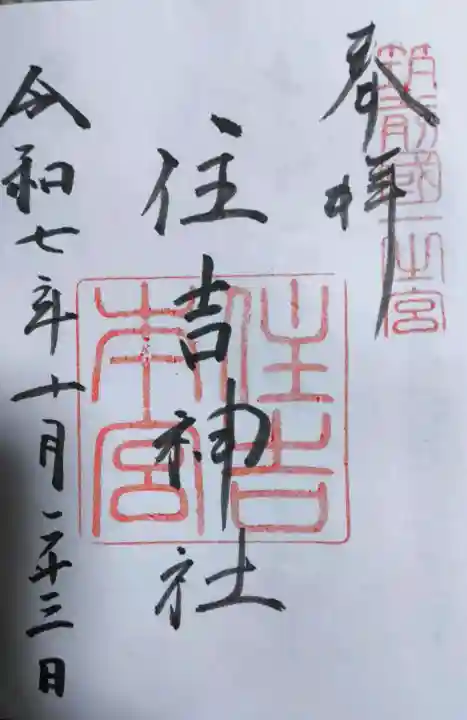 奉拝
筑前國一之宮
住吉神社
住吉本宮
令和七年十月二十三日